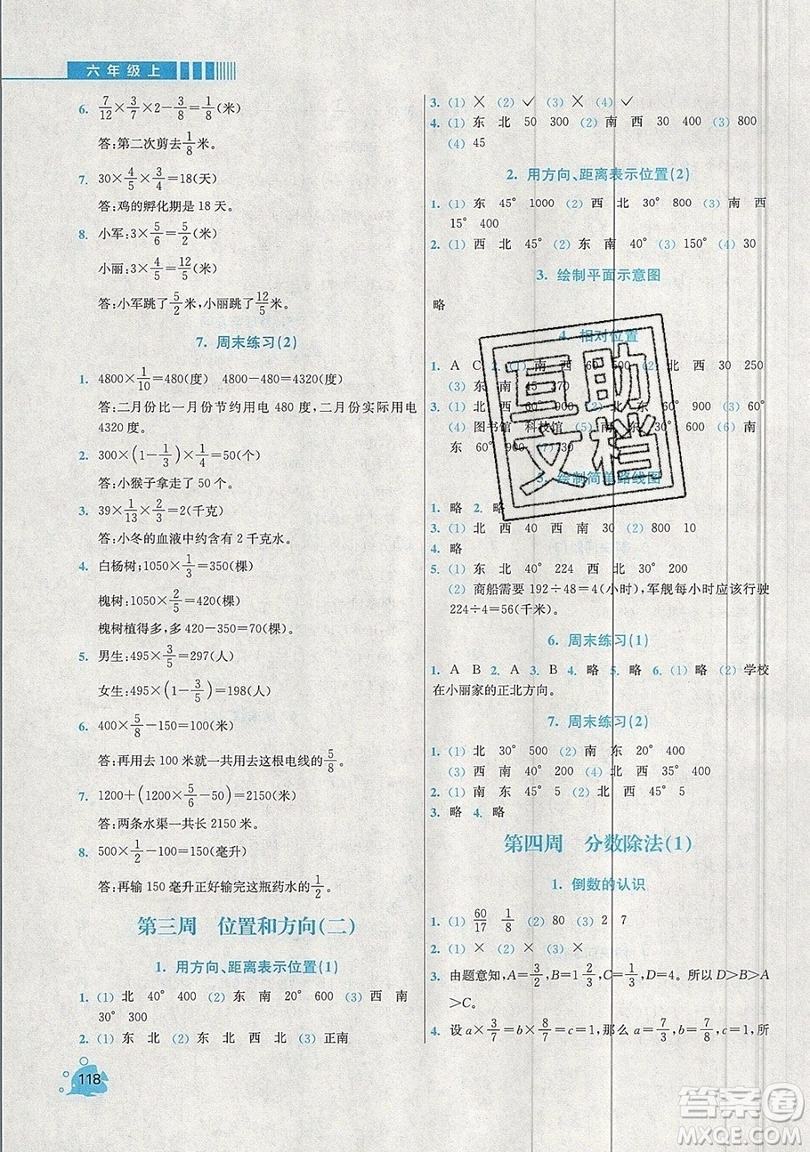 六年级上
6. 7/12×3/7×2-3/8=1/8(米)
答:第二次剪去1/8米。
7. 30×4/5×3/4=18(天)
答:鸡的孵化期是 18 天。
8. 小军:3×5/6=5/2(米)
小丽:3×4/5=12/5(米)
答:小军跳了5/2米,小丽跳了12/5米。
7. 周末练习(2)
1. 4800×1/10=480(度) 4800-480=4320(度)
答:二月份比一月份节约用电 480 度,二月份实际用电
4320 度。
2. 300×(1-1/3)×1/4=50(个)
答:小猴子拿走了 50 个。
3. 39×1/13×2/3=2(千克)
答:小冬的血液中约有 2 千克水。
4. 白杨树:1050×1/3=350(棵)
槐树:1050×2/5=420(棵)
槐树植得多,多 420-350=70(棵)
5. 男生:495×3/5=297(人)
女生:495×(1-3/5)=198(人)
6. 400×5/8-150=100(米)
答:再用去 100 米就一共用去这根电线的5/8。
7. 1200+(1200×5/6-50)=2150(米)
答:两条水渠一共长 2150 米。
8. 500×1/2-100=150(毫升)
答:再输 150 毫升正好输完这瓶药水的1/2。
第三周 位置和方向(二)
1. 用方向、距离表示位置(1)
1. (1) 北 40° 400 (2) 东 南 20° 600 (3) 西 南
30° 300
2. (1) 东 北 (2) 东 北 西 北 (3) 正南
118
3. (1) × (2) ✓ (3) × (4) ✓
4. (1) 东 北 50 300 (2) 南 西 30 400 (3) 800
(4) 45
2. 用方向、距离表示位置(2)
1. (1) 东 45° 1000 (2) 西 北 30° 800 (3) 南 西
15° 400
2. (1) 西 北 45° (2) 东 南 40° (3) 150° (4) 30
3. 绘制平面示意图
略
4. 相对位置
1. A C 2. (1) 南 西 60 500 (2) 北 西 30 250
(3) 东 南 45 370
3. (1) 北 西 60° 900 (2) 北 东 60° 900 (3) 60°
(4) 图书馆 科技馆 (5) 南 西 60° 900 (6) 南
东 60° 900 30
5. 绘制简单路线图
1. 略 2. 略
3. (1) 北 西 40 西 南 30 (2) 800 10
4. 略
5. (1) 东 北 40° 224 西 北 30° 200
(2) 商船需要 192÷48=4(小时),军舰每小时应该行驶
224÷4=56(千米)。
6. 周末练习(1)
1. A B 2. A B 3. 略 4. 略 5. 略 6. (1) 略 (2) 学校
在小丽家的正北方向。
7. 周末练习(2)
1. (1) 北 30° 500 (2) 南 东 20° 400
(3) 西 南 40° 200 (4) 东 北 20° 400
2. (1) 东 南 45° 5 (2) 北 西 45° 5
3. 略 4. 略
第四周 分数除法(1)
1. 倒数的认识
1. (1) 60/17 1/8 (2) 80 (3) 2 7
2. (1) × (2) × (3) ×
3. 由题意知,A=3/2,B=1 2/3,C=1,D=4。所以 D>B>A
>C。
4. 设 a×3/7=b×8/7=c=1,那么 a=7/3,b=7/8,c=1,所
互助
文档
答案圈
MXQE.COM